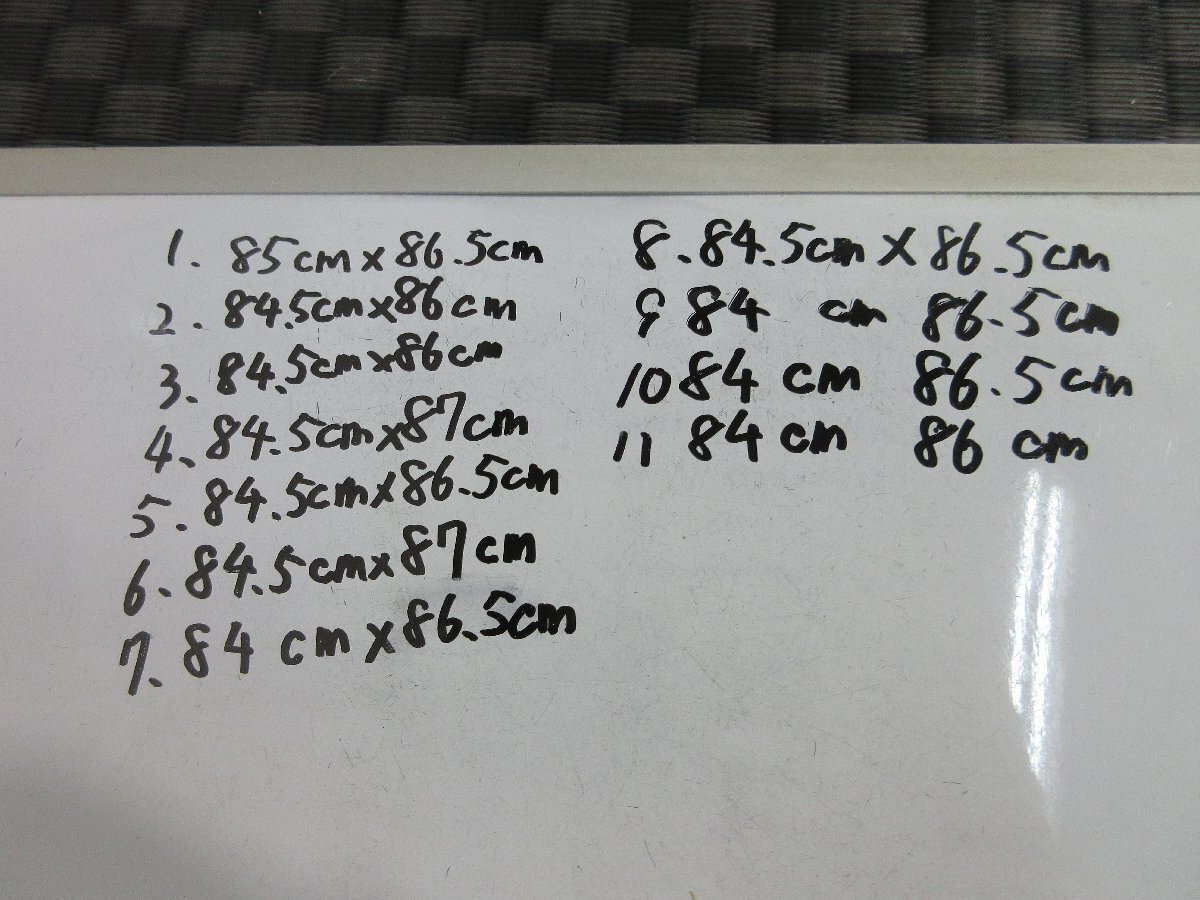 1. 85cm x 86.5cm
2. 84.5cm x 86cm
3. 84.5cm x 86cm
4. 84.5cm x 87cm
5. 84.5cm x 86.5cm
6. 84.5cm x 87cm
7. 84 cm x 86.5cm
8. 84.5cm x 86.5cm
9 84 cm 86.5cm
10 84 cm 86.5cm
11 84 cm 86 cm